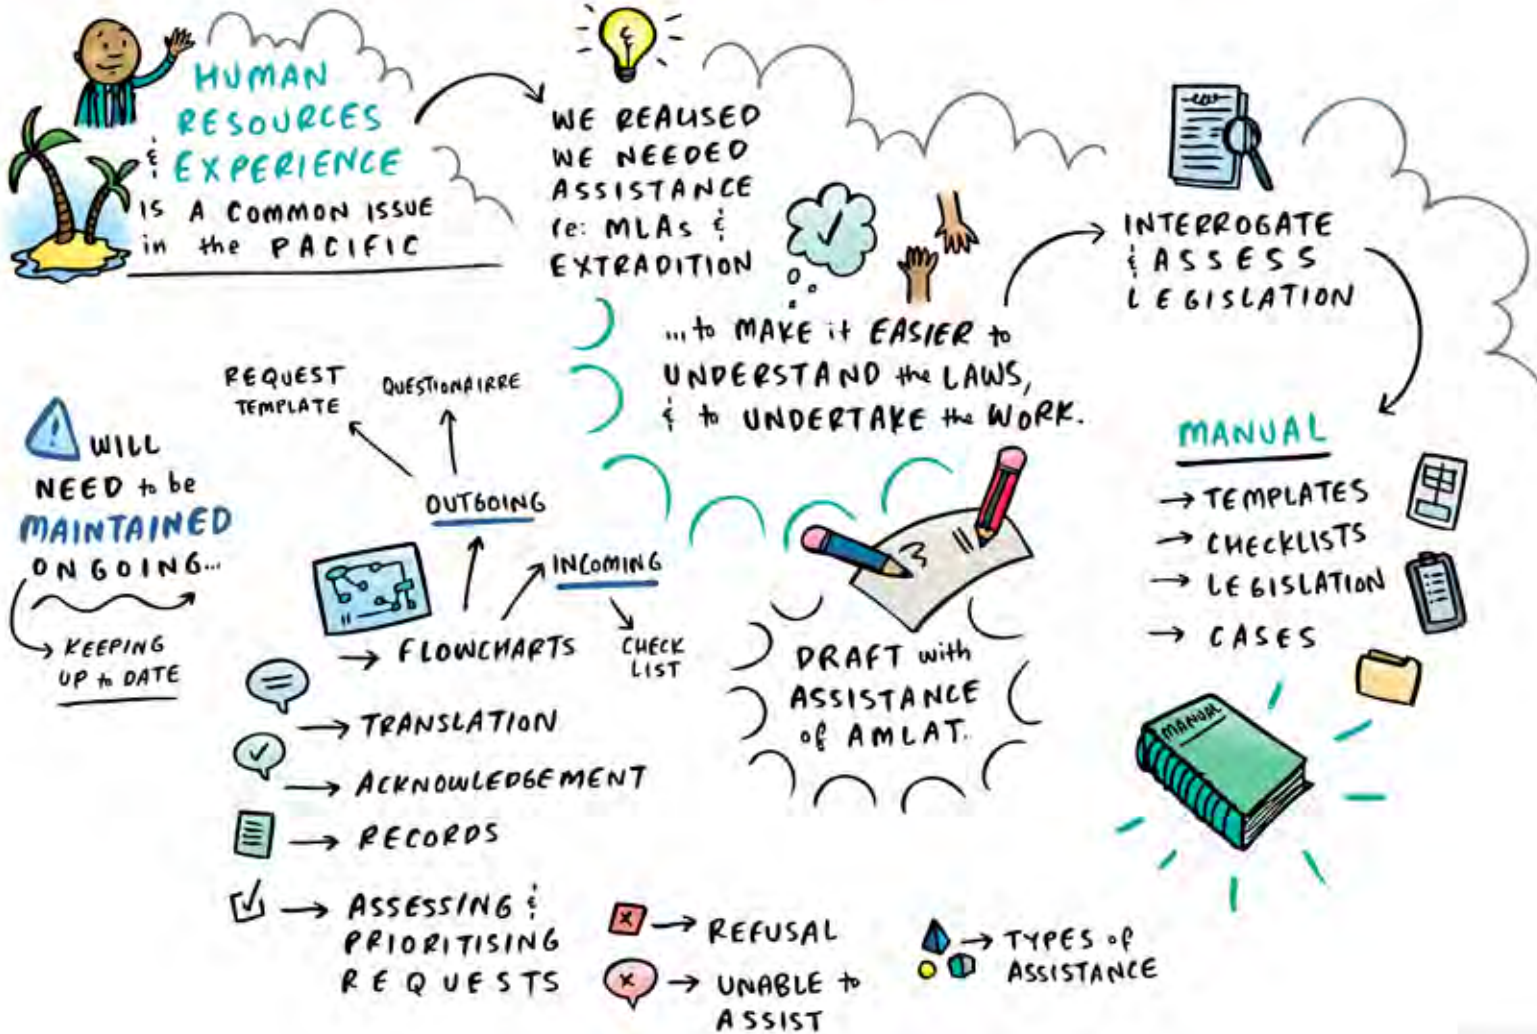 HUMAN
RESOURCES
& EXPERIENCE
IS A COMMON ISSUE
in the PACIFIC
WE REALISED
WE NEEDED
ASSISTANCE
re: MLAs &
EXTRADITION
...to MAKE it EASIER to
UNDERSTAND the LAWS,
& to UNDERTAKE the WORK.
INTERROGATE
& ASSESS
LEGISLATION
MANUAL
→ TEMPLATES
→ CHECKLISTS
→ LEGISLATION
→ CASES
MANUAL
DRAFT with
ASSISTANCE
of AMLAT.
REQUEST
TEMPLATE
QUESTIONAIRRE
OUTGOING
INCOMING
CHECK
LIST
→ FLOWCHARTS
→ TRANSLATION
→ ACKNOWLEDGEMENT
→ RECORDS
→ ASSESSING &
PRIORITISING
REQUESTS
→ REFUSAL
→ UNABLE to
ASSIST
→ TYPES of
ASSISTANCE
! WILL
NEED to be
MAINTAINED
ONGOING...
KEEPING
UP to DATE